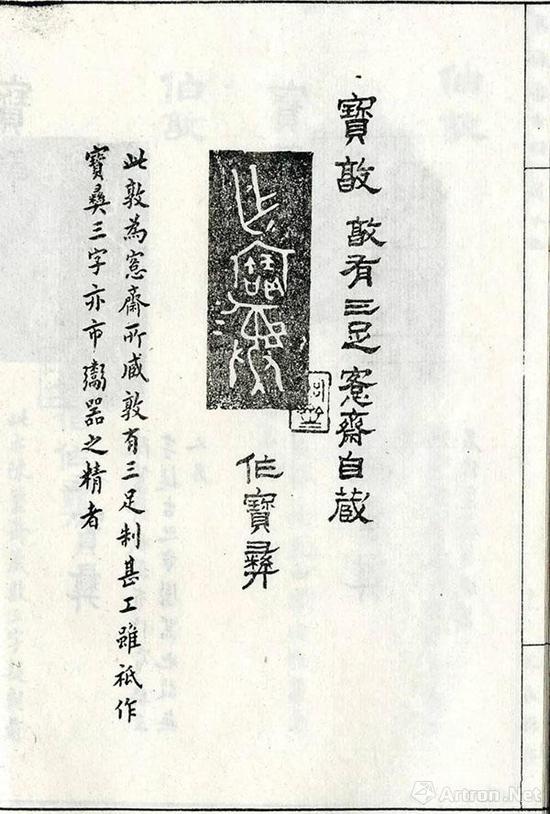 寶敦 敦有三足 愙齋自藏
作寶彝
伯寶彝
此敦為愙齋所臧敦有三足制甚工雖祇作
寶彝三字亦市鬻器之精者
Artron.Net